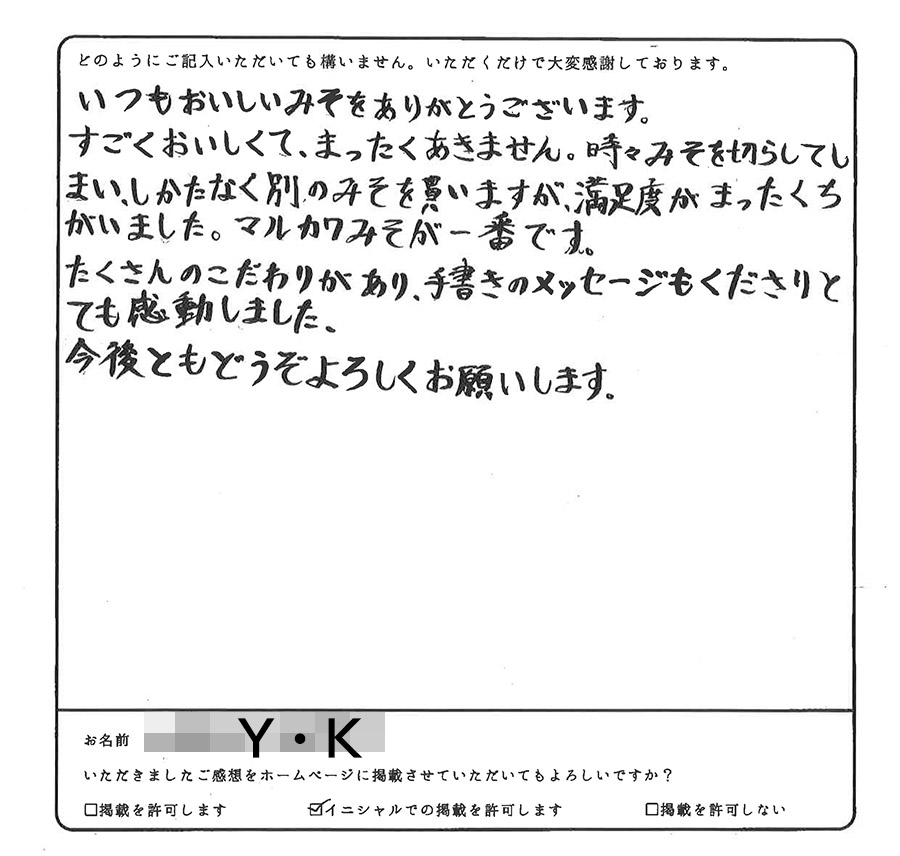 どのようにご記入いただいても構いません。いただくだけで大変感謝しております。
いつもおいしいみそをありがとうございます。
すごくおいしくて、まったくあきません。時々みそを切らしてし
まい、しかたなく別のみそを買いますが、満足度がまったくち
がいました。マルカワみそが一番です。
たくさんのこだわりがあり、手書きのメッセージもくださりと
ても感動しました。
今後ともどうぞよろしくお願いします。
お名前 Y・K
いただきましたご感想をホームページに掲載させていただいてもよろしいですか？
□掲載を許可します ☑イニシャルでの掲載を許可します □掲載を許可しない